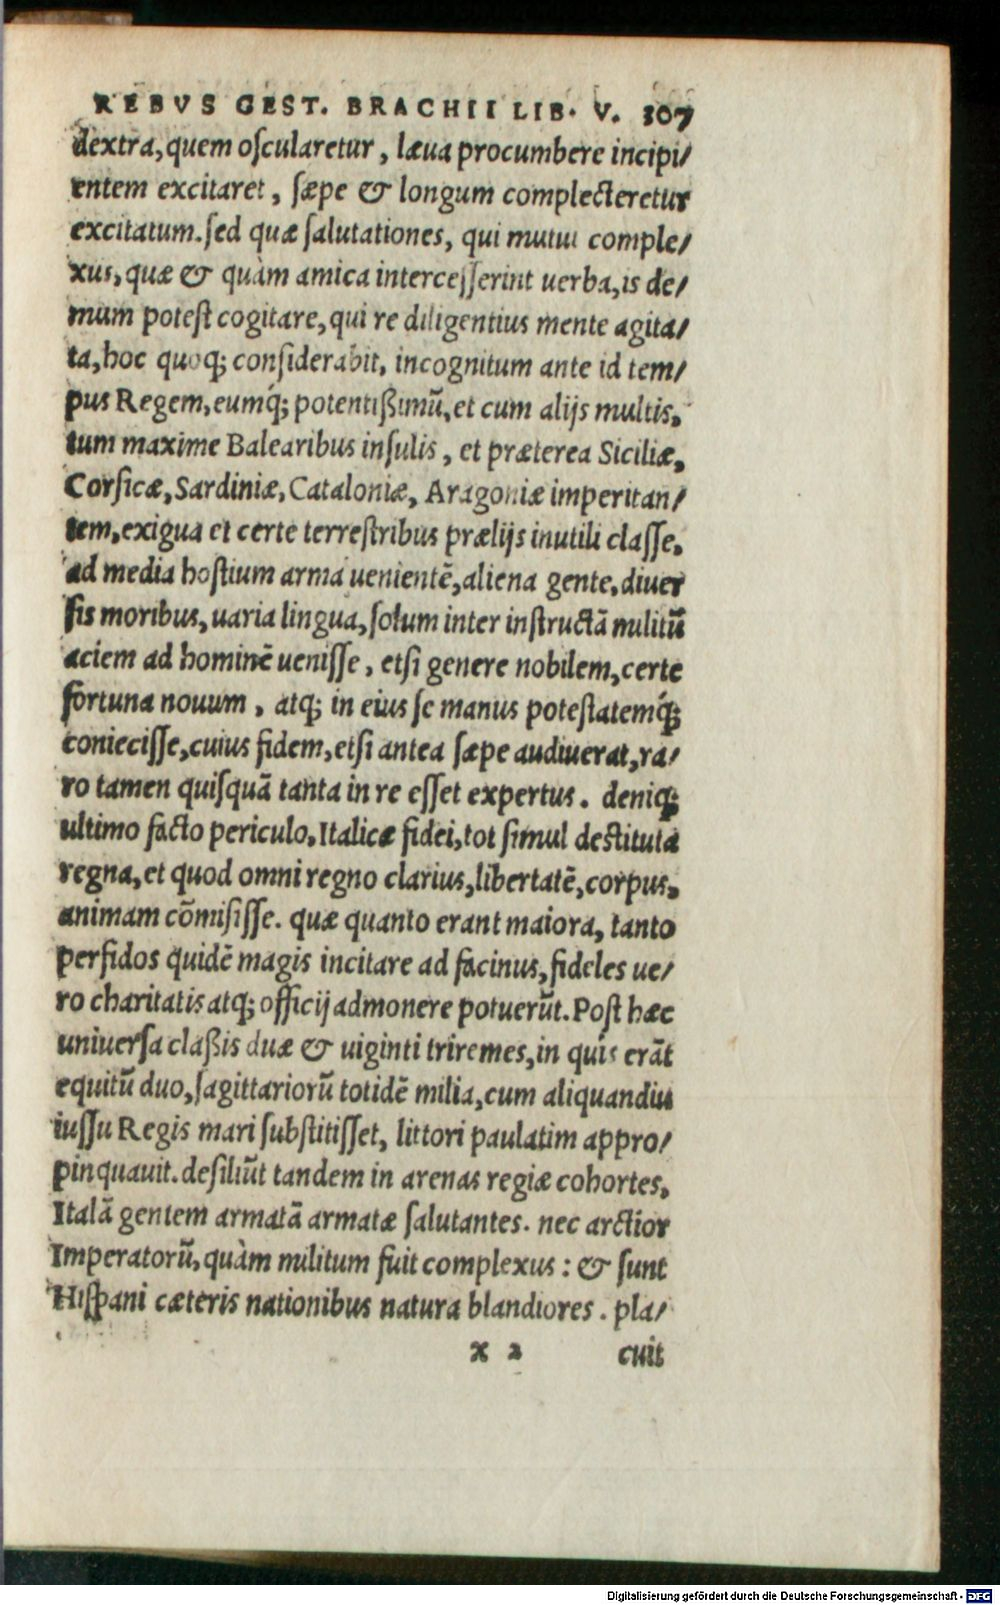 REBVS GEST. BRACHII LIB. V. 307
dextra, quem oſcularetur, læua procumbere incipi/
entem excitaret, ſæpe & longum complecteretur
excitatum. ſed quæ ſalutationes, qui mutui comple/
xus, quæ & quàm amica interceſſerint uerba, is de/
mum poteſt cogitare, qui re diligentius mente agita/
ta, hoc quoq; conſiderabit, incognitum ante id tem/
pus Regem, eumq́; potentißimũ, et cum alijs multis,
tum maxime Balearibus inſulis, et præterea Siciliæ,
Corſicæ, Sardiniæ, Cataloniæ, Aragoniæ imperitan/
tem, exigua et certe terreſtribus prælijs inutili claſſe,
ad media hoſtium arma uenientẽ, aliena gente, diuer
ſis moribus, uaria lingua, ſolum inter inſtructã militũ
aciem ad hominẽ ueniſſe, etſi genere nobilem, certe
fortuna nouum, atq; in eius ſe manus poteſtatemq́;
conieciſſe, cuius fidem, etſi antea ſæpe audiuerat, ra/
ro tamen quiſquã tanta in re eſſet expertus. deniq;
ultimo facto periculo, Italicæ fidei, tot ſimul deſtituta
regna, et quod omni regno clarius, libertatẽ, corpus,
animam cõmiſiſſe. quæ quanto erant maiora, tanto
perfidos quidẽ magis incitare ad facinus, fideles ue/
ro charitatis atq; officij admonere potuerũt. Poſt hæc
uniuerſa claßis duæ & uiginti triremes, in quis erãt
equitũ duo, ſagittariorũ totidẽ milia, cum aliquandiu
iuſſu Regis mari ſubſtitiſſet, littori paulatim appro/
pinquauit. deſiliũt tandem in arenas regiæ cohortes,
Italã gentem armatã armatæ ſalutantes. nec arctior
Imperatorũ, quàm militum fuit complexus: & ſunt
Hiſpani cæteris nationibus natura blandiores. pla/
x 2 cuit
Digitalisierung gefördert durch die Deutsche Forschungsgemeinschaft - DFG